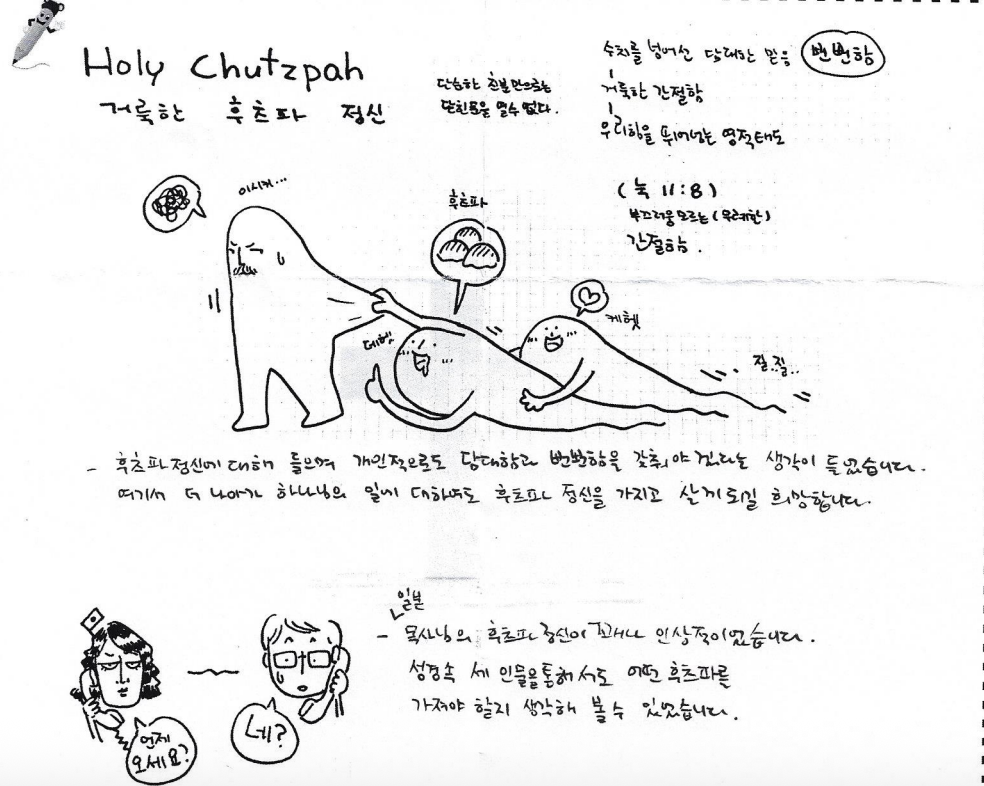 Holy Chutzpah
거룩한 후츠파 정신
단순한 친분만으로는
닫힌문을 열수 없다.
수치를 넘어선 담대한 믿음 뻔뻔함
거룩한 간절함
우리힘을 뛰어넘는 영적태도
(눅 11:8)
부끄러움모르는(무례한)
간절함.
이시키...
후츠파
데헷
케헷
질..질..
- 후츠파정신에 대해 들으며 개인적으로도 담대함과 뻔뻔함을 갖춰야 겠다는 생각이 들었습니다.
여기서 더 나아가 하나님의 일에 대하여도 후츠파 정신을 가지고 살게되길 희망합니다.
일본
- 목사님의 후츠파 정신이 꽤나 인상적이었습니다.
성경속 세 인물을통해서도 어떤 후츠파를
가져야 할지 생각해 볼 수 있었습니다.
언제
오세요?
네?